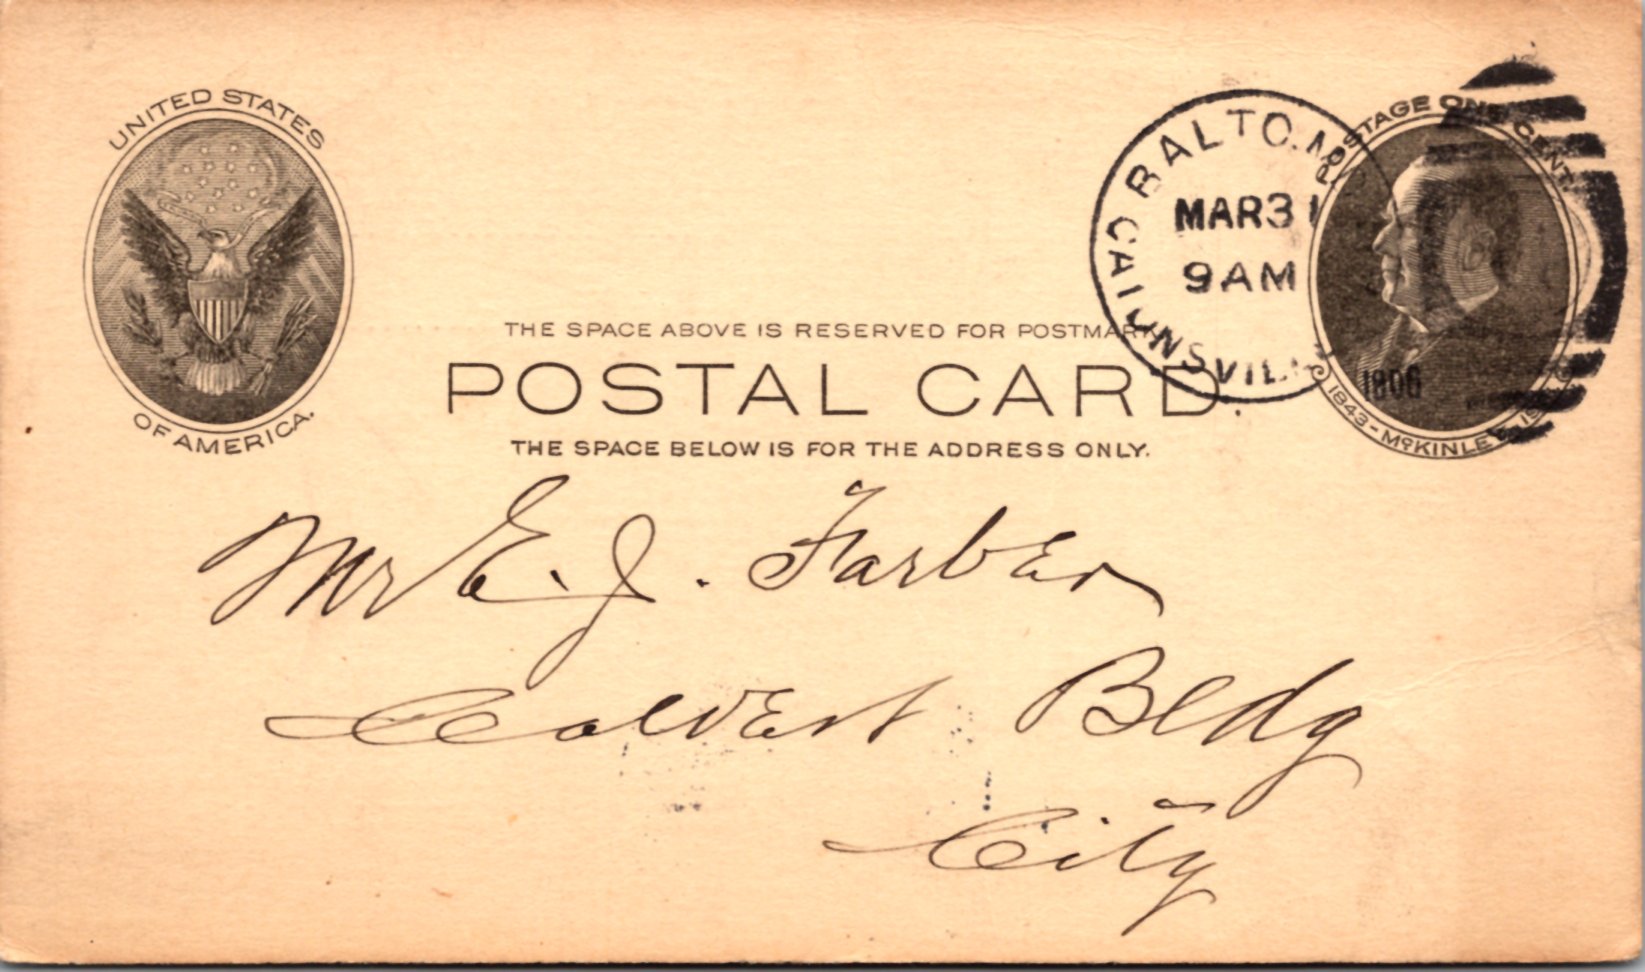 UNITED STATES
OF AMERICA.
BALTO. M
CAT NSVILL
MAR 31
9 AM
1906
POSTAGE ONE CENT
1843 - McKINLEY
THE SPACE ABOVE IS RESERVED FOR POSTMARK
POSTAL CARD.
THE SPACE BELOW IS FOR THE ADDRESS ONLY.
Mr E. J. Farber
Calvert Bldg
City